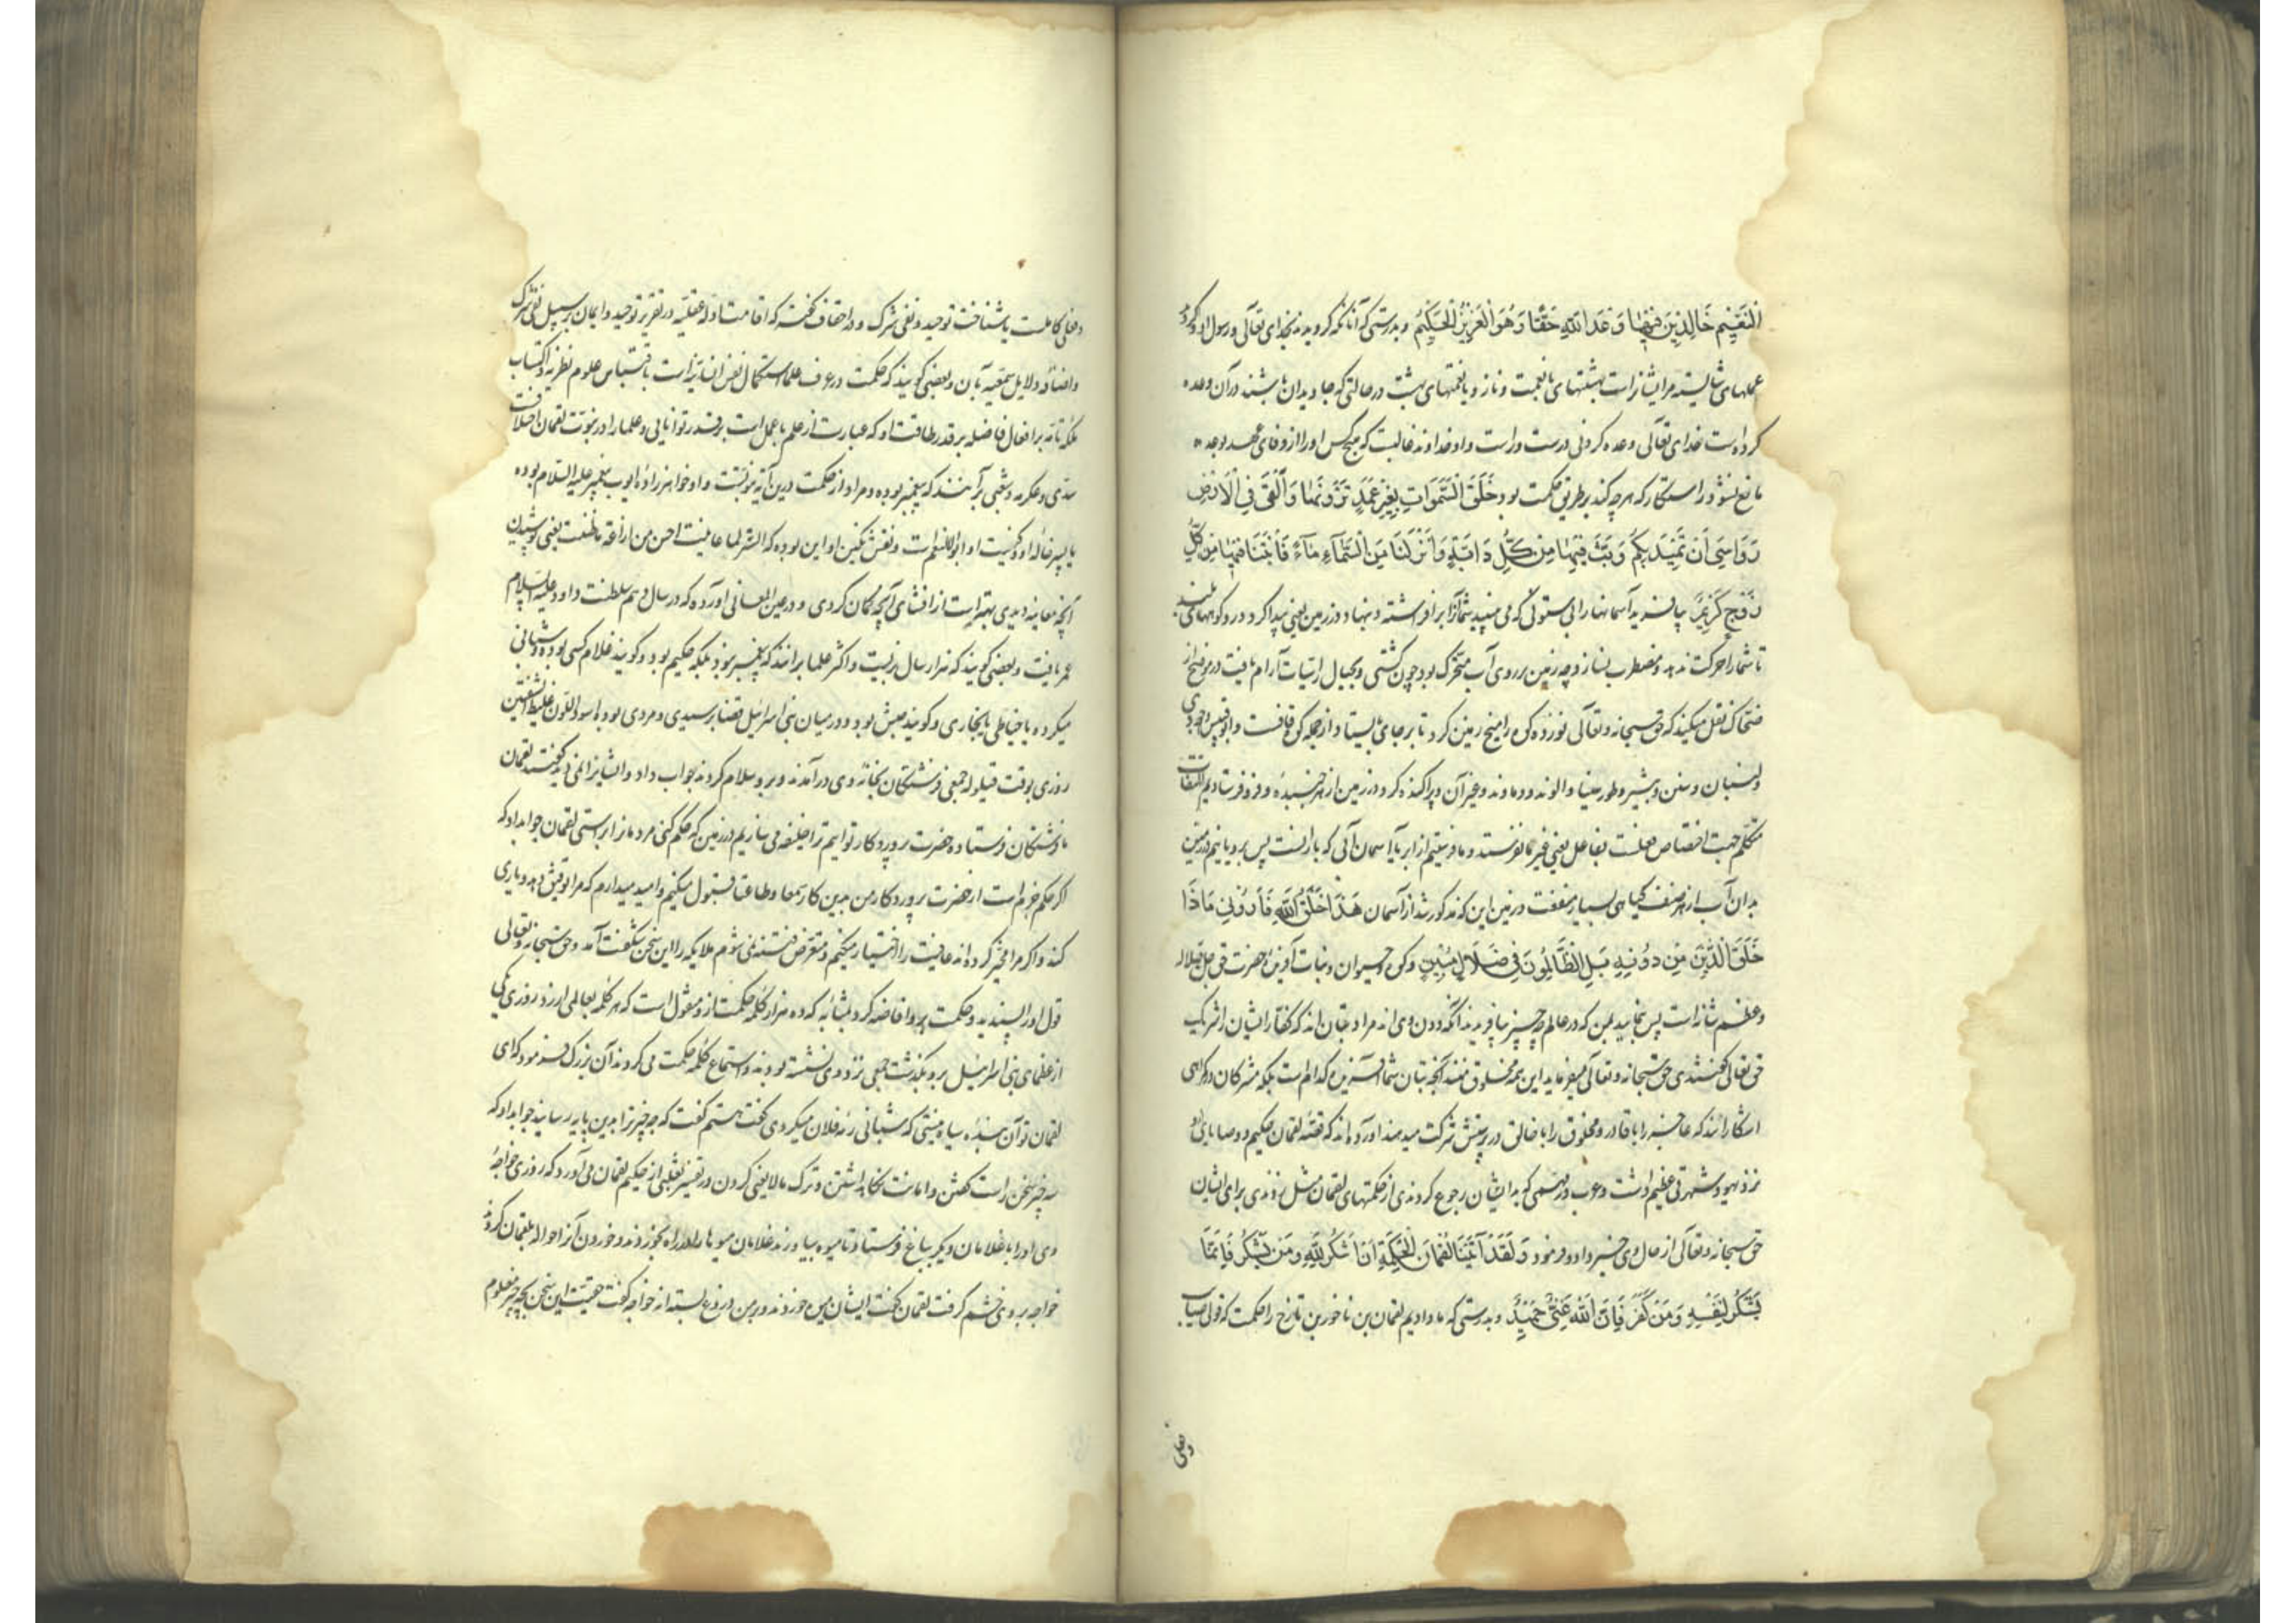 النَّعِيْمِ خَالِدِيْنَ فِيْهَا وَعَدَ اللهِ حَقًّا وَهُوَ الْعَزِيْزُ الْحَكِيْمُ و بدرستی که آنانکه گرویدند بخدای تعالی و رسول او و کردند
عملهای شایسته مرایشانراست بهشتهای با نعمت و ناز و یا نعمتهای بهشت در حالتی که جاویدان باشند در آن وعده
کرده است خدای تعالی وعده کردنی درست و راست و او خداوند غالبست که هیچکس او را از وفای عهد بوعده
مانع نشود و راستکار که هر چه کند بر طریق حکمت بود خَلَقَ السَّمَوَاتِ بِغَيْرِ عَمَدٍ تَرَوْنَهَا وَاَلْقَى فِي الْاَرْضِ
رَوَاسِيَ اَنْ تَمِيْدَ بِكُمْ وَبَثَّ فِيْهَا مِنْ كُلِّ دَابَّةٍ وَاَنْزَلْنَا مِنَ السَّمَآءِ مَآءً فَاَنْبَتْنَا فِيْهَا مِنْ كُلِّ
زَوْجٍ كَرِيْمٍ بیافرید آسمانها را بی ستونی که می بینید شما آنرا برافراشته و بنهاد در زمین یعنی پیدا کرد در و کوههای بلند
تا شما را حرکت ندهد و مضطرب نسازد چه زمین بر روی آب متحرک بود چون کشتی و بجبال راسیات آرام یافت در موضح از
ضحاک نقل میکند که حق سبحانه و تعالی نوزده کوه را میخ زمین کرد تا بر جای بایستاد از جمله کوه قافست و ابوقبیس و جودی
و لبنان و سنین و بشیر و طور سینا و الوند و دماوند و غیر آن و پراکنده کرد در زمین از هر جنبنده و فرو فرستادیم التفات
متکلم جهت اختصاص فعلست بفاعل یعنی غیر ما نفرستد و ما فرستیم از ابر یا آسمان آبی که بارانست پس برویانیم در زمین
بدان آب از هر صنف گیاهی بسیار منفعت در زمین این که مذکور شد از آسمان هَذَا خَلْقُ اللهِ فَاَرُوْنِي مَاذَا
خَلَقَ الَّذِيْنَ مِنْ دُوْنِهِ بَلِ الظَّالِمُوْنَ فِي ضَلَالٍ مُبِيْنٍ و کوه و حیوان و نبات آفرینش حضرت حق جل جلاله
و عظم شانه است پس بنمایید بمن که در عالم چه چیز بیافریدند آنکه دون وی اند مراد بتان اند که کفار ایشان را شریک
حق تعالی گفتندی حق سبحانه و تعالی میفرماید این همه مخلوق منند آنچه بتان شما آفریده کدام است بلکه مشرکان در گمراهی
آشکارااند که عاجز را با قادر و مخلوق را با خالق در پرستش شرکت میدهند آورده اند که قصهٔ لقمان حکیم و وصایای او
نزد یهود شهرتی عظیم داشت و عرب در مهمی که بدیشان رجوع کردندی از حکمتهای لقمان مثل زدندی برای ایشان
حق سبحانه و تعالی از حال وی خبر داد و فرمود وَلَقَدْ آتَيْنَا لُقْمَانَ الْحِكْمَةَ اَنِ اشْكُرْ لِلّٰهِ وَمَنْ يَشْكُرْ فَاِنَّمَا
يَشْكُرُ لِنَفْسِهِ وَمَنْ كَفَرَ فَاِنَّ اللهَ غَنِيٌّ حَمِيْدٌ و بدرستی که ما دادیم لقمان بن ناخور بن تارخ را حکمت که قول صایب
و فعلی
و فعلی کاملست یا شناخت توحید و نفی شرک و در احقاف گفته که اقامت ادله عقلیه در تقریر توحید و ایمان بر سبیل نفی شرک
و اضافه دلایل سمعیه بآن و بعضی گویند که حکمت در عرف علما استکمال نفس انسانیه است باقتباس علوم نظریه و اکتساب
ملکه تامه بر افعال فاضله بر قدر طاقت او که عبارت از علم با عمل است بر قدر توانایی و علما را در نبوت لقمان اختلافست
سدی و عکرمه و شعبی بر آنند که پیغمبر بوده و مراد از حکمت درین آیه نبوتست و او خواهرزادهٔ ایوب پیغمبر علیه السلام بوده
یا پسر خالهٔ او و کنیت او ابوالانعم است و نقش نگین او این بوده که الستر لما عاینت احسن من اذاعة ما ظننت یعنی پوشیدن
آنچه معاینه دیدی بهتر است از افشای آنچه گمان کردی و در عین المعانی آورده که در سال دهم سلطنت داود علیه السلام
عمر یافت و بعضی گویند که هزار سال بزیست و اکثر علما برانند که پیغمبر نبود بلکه حکیم بود و گویند غلام کسی بوده و شبانی
میکرده یا خیاطی یا نجاری و گویند حبشی بود و در میان بنی اسرائیل قضا برسیدی و مردی بود اسود اللون غلیظ الشفتین
روزی بوقت قیلوله جمعی فرشتگان بخانه وی در آمدند و برو سلام کردند جواب داد و ایشانرا نمی دید گفتند لقمان
ما فرشتگان فرستادهٔ حضرت پروردگار توایم ترا خلیفه می سازیم در زمین که حکم کنی مردمانرا براستی لقمان جواب داد که
اگر حکم جزم است از حضرت پروردگار من بدین کار سمعا و طاعة قبول میکنم و امید میدارم که مرا توفیق دهد و یاری
کند و اگر مرا مخیر کرده اند عافیت را اختیار میکنم و متعرض فتنه نمی شوم ملایکه را این سخن شگفت آمد و حق سبحانه و تعالی
قول او را پسندیده و حکمت برو افاضه کرد بمثابه که ده هزار کلمهٔ حکمت از و منقول است که هر کلمه بعالمی ارزد روزی یکی
از عظمای بنی اسرائیل برو بگذشت جمعی نزد وی نشسته بودند و استماع کلمهٔ حکمت می کردند آن بزرگ فرمود که ای
لقمان تو آن بندهٔ سیاه نیستی که شبانی رمهٔ فلان میکردی گفت هستم گفت که چه چیز ترا بدین پایه رسانید جواب داد که
سه چیز سخن راست گفتن و امانت نگاه داشتن و ترک ما لا یعنی کردن در تفسیر ثعلبی از حکیم لقمان می آورد که روزی خواجهٔ
وی او را با غلامان دیگر بباغ فرستاد تا میوه بیاورند غلامان میوها را در راه بخوردند و خوردن آنرا حواله بلقمان کردند
خواجه بر وی خشم گرفت لقمان گفت ایشان میوه خوردند و بر من دروغ بسته اند خواجه گفت حقیقت این سخن بچه چیز معلوم